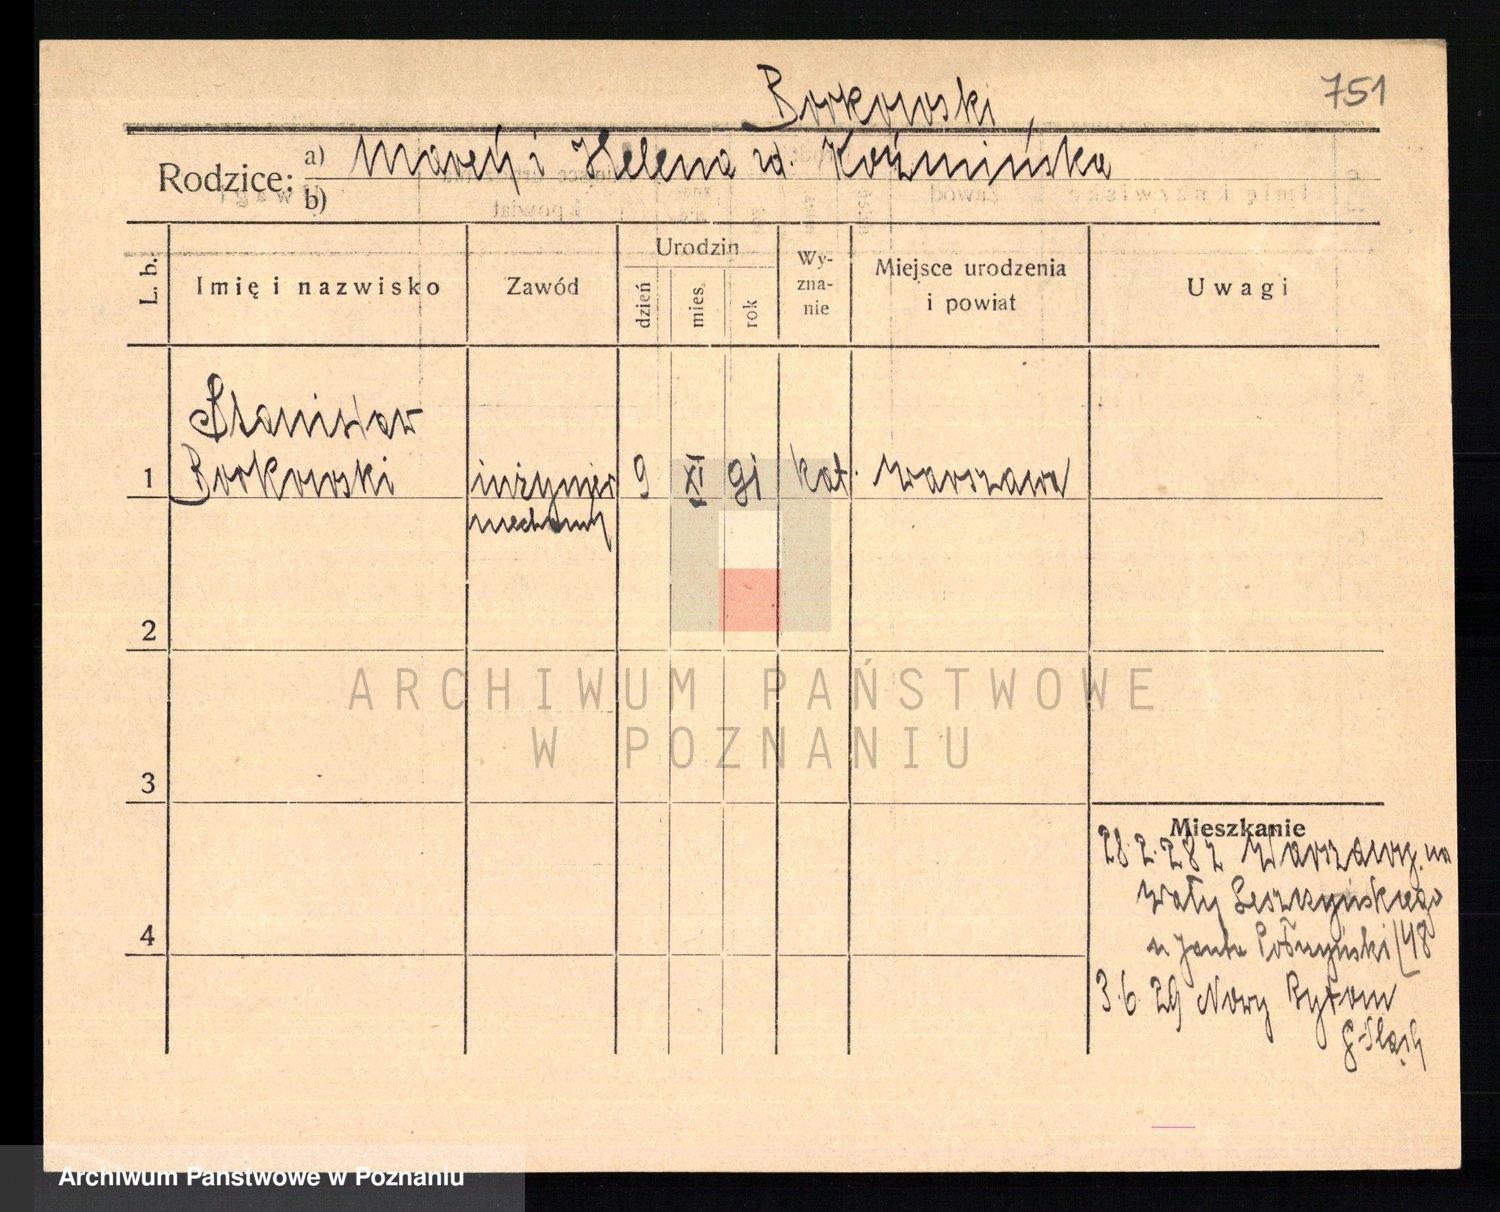 Borkowski
751
Rodzice: a) Marek i Helena zd. Koźmińska
b)
L. b.
Imię i nazwisko
Zawód
Urodzin
dzień
mies.
rok
Wy-
zna-
nie
Miejsce urodzenia
i powiat
Uwagi
Stanisław
1 Borkowski inżynier 9 XI 91 kat. Warszawa
2
3
4
Mieszkanie
28.2.28 z Warszawy na
Wały Leszczyńskiego
u
3.6.29 Nowy Bytom
G-Śląsk
ARCHIWUM PAŃSTWOWE
W POZNANIU
Archiwum Państwowe w Poznaniu